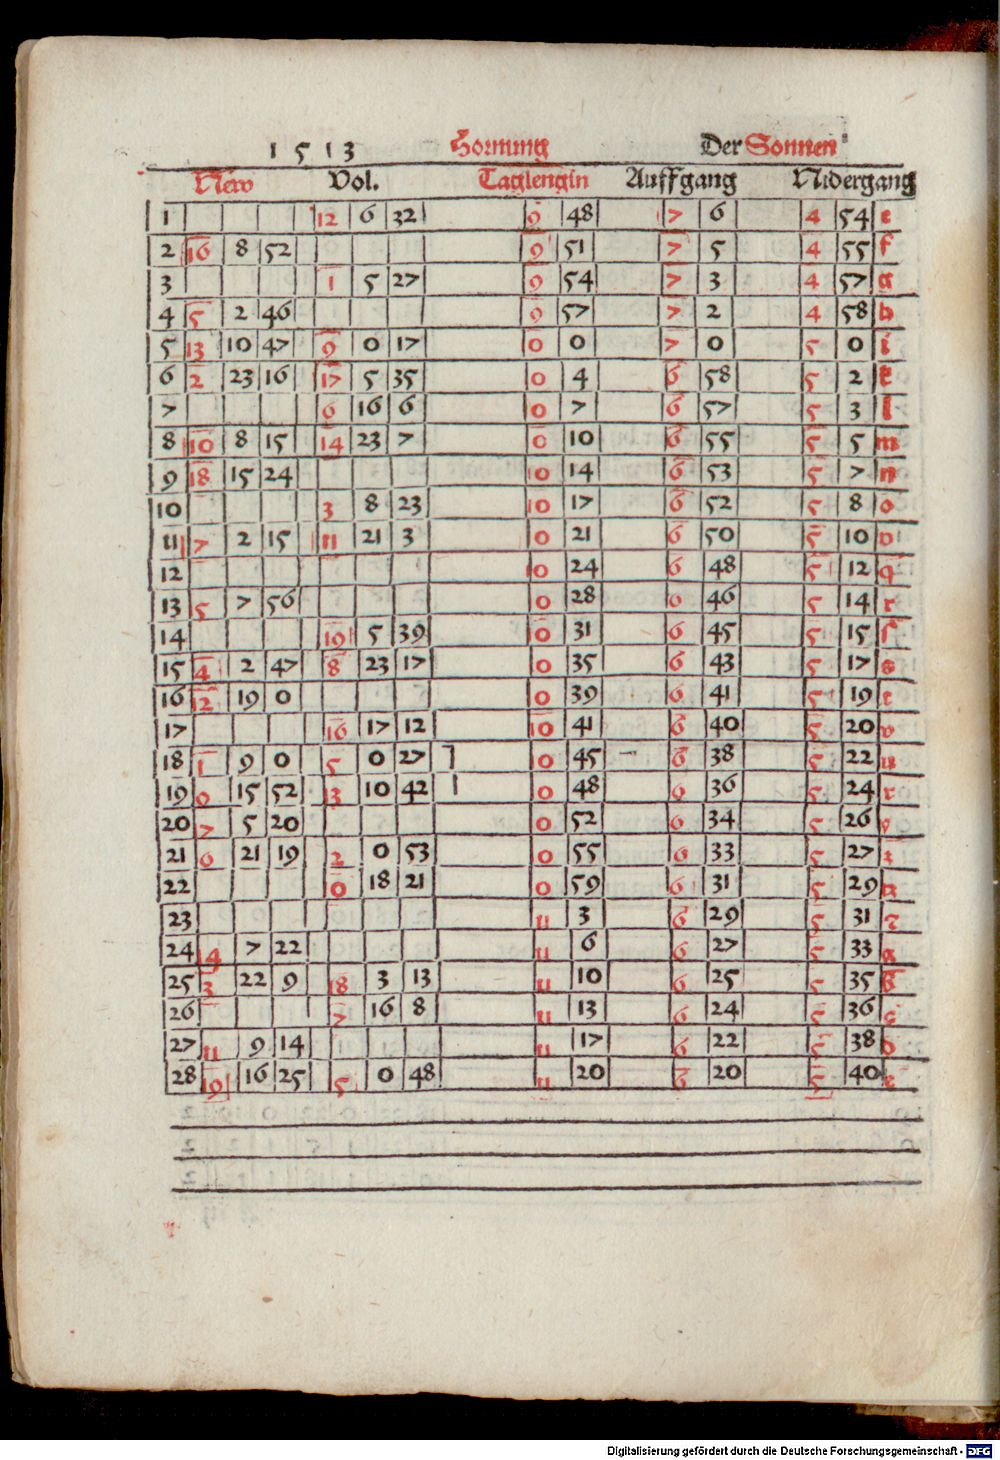 1 5 1 3 Hornung Der Sonnen
New Vol. Taglengin Auffgang Nidergang
1 12 6 32 9 48 7 6 4 54 e
2 16 8 52 9 51 7 5 4 55 f
3 1 5 27 9 54 7 3 4 57 g
4 5 2 46 9 57 7 2 4 58 h
5 13 10 47 9 0 17 0 0 7 0 5 0 i
6 2 23 16 17 5 35 0 4 6 58 5 2 k
7 6 16 6 0 7 6 57 5 3 l
8 10 8 15 14 23 7 0 10 6 55 5 5 m
9 18 15 24 10 14 6 53 5 7 n
10 3 8 23 10 17 6 52 5 8 o
11 7 2 15 11 21 3 0 21 6 50 5 10
12 10 24 6 48 5 12 q
13 5 7 56 0 28 6 46 5 14 r
14 19 5 39 0 31 6 45 5 15 ſ
15 4 2 47 8 23 17 0 35 6 43 5 17 s
16 12 19 0 0 39 6 41 5 19 t
17 16 17 12 10 41 6 40 5 20 v
18 1 9 0 5 0 27 0 45 6 38 5 22 u
19 9 15 52 13 10 42 0 48 6 36 5 24
20 7 5 20 0 52 6 34 5 26
21 6 21 19 2 0 53 0 55 6 33 5 27
22 0 18 21 0 59 6 31 5 29
23 11 3 6 29 5 31
24 14 7 22 11 6 6 27 5 33 a
25 3 22 9 18 3 13 11 10 6 25 5 35 b
26 7 16 8 11 13 6 24 5 36 c
27 11 9 14 11 17 6 22 5 38 d
28 19 16 25 5 0 48 11 20 6 20 5 40 e
Digitalisierung gefördert durch die Deutsche Forschungsgemeinschaft - DFG